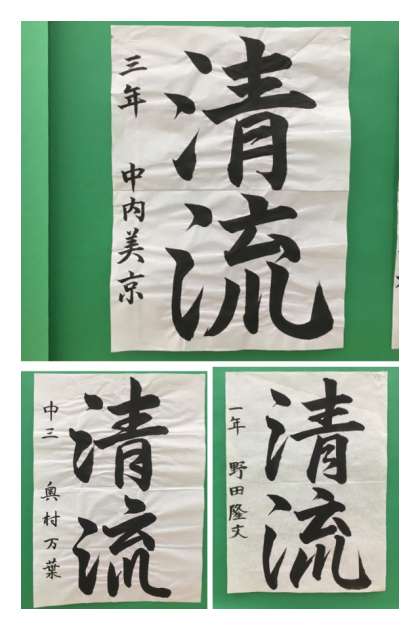 清流
三年 中内美京
清流
中三 奥村万葉
清流
一年 野田隆文